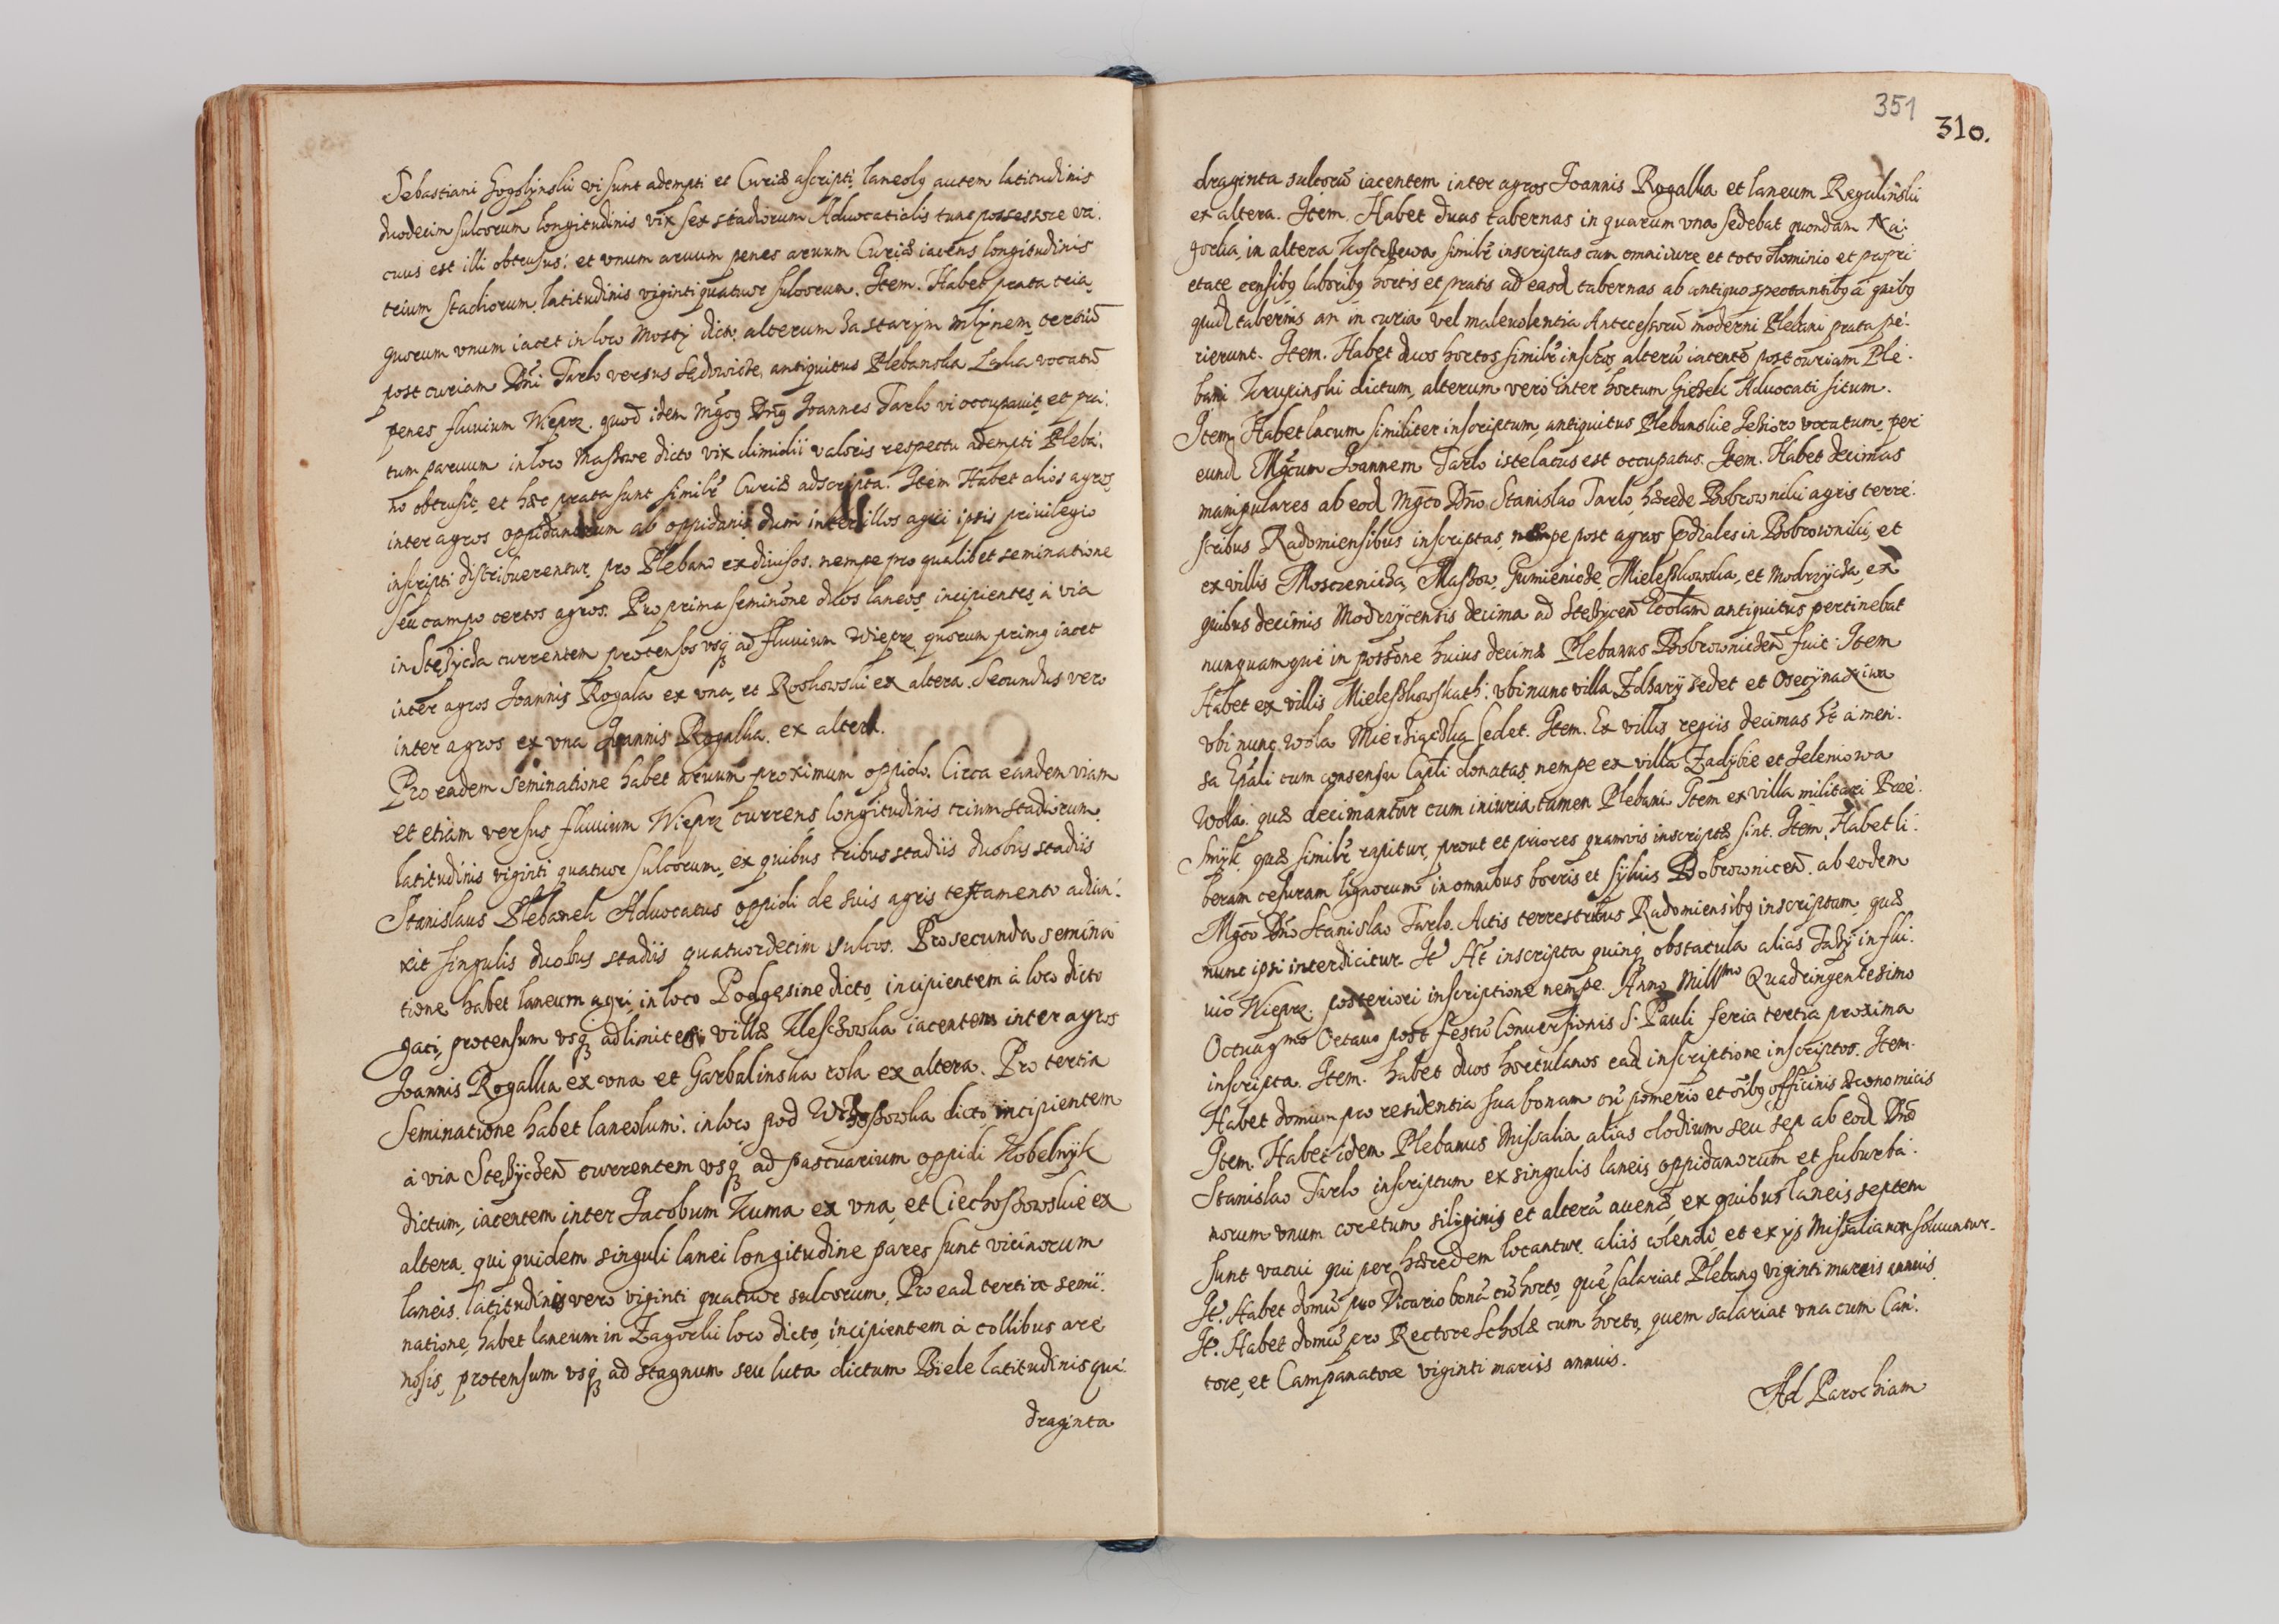 Sebastiani Gogolinskii vi sunt adempti et Curiæ ascripti, laneolꝯ autem latitudinis
duodecim sulcorum longitudinis vix sex stadiorum Aduocatialis tunc possessore va:
cuus est illi obtrusus: et vnum aruum penes aruum Curiæ iacens longitudinis
trium stadiorum, latitudinis viginti quatuor sulcorum. Item. Habet prata tria,
quorum vnum iacet in loco Mosty dicto: alterum za starÿm mlÿnem, tertiũ
post curiam Dñi Tarlo versus Sędowicze, antiquitus Plebanska Ląka vocatũ
penes fluuium Wieprz. quod idem Mgcꝯ Dnꝯ Joannes Tarlo vi occupauit, et pra:
tum paruum in loco Maszowe dicto vix dimidii valoris respectu adempti Pleba:
no obtrusit, et hæc prata sunt similr Curiæ adscripta. Item Habet alios agros,
inter agros oppidanorum ab oppidanis, dum inter illos agri ipsis priuilegio
inscripti distribuerentur, pro Plebano ex diuisos. nempe pro qualibet seminatione
seu campo certos agros. Pro prima seminõne duos laneos, incipientes, à via
in Stęzycza currentem protensos vsqꝫ ad fluuium Wieprz, quorum primꝯ iacet
inter agros Joannis Rogala ex vna, et Roskowski ex altera. Secundus vero
inter agros ex vna Joannis Rogalka. ex altera.
Pro eadem seminatione habet aruum proximum oppido. Circa eandem viam
et etiam versus fluuium Wieprz currens longitudinis trium stadiorum.
latitudinis viginti quatuor sulcorum, ex quibus tribus stadiis duobus stadiis
Stanislaus Plebanek Aduocatus oppidi de suis agris testamento adiun:
xit singulis duobus stadiis quatuordecim sulcos. Pro secunda semina
tione habet laneum agri, in loco Podgęsine dicto, incipientem à loco dicto
gaci, protensum vsqꝫ ad limites villæ Kleszczowka iacentem inter agros
Joannis Rogalka ex vna et Garbalinska rola ex altera. Pro tertia
Seminatione habet laneolum: in loco pod dicto incipientem
à via Stęzÿczeñ currentem vsqꝫ ad pascuarium oppidi Kobelnÿk
dictum, iacentem inter Jacobum Kuma ex vna, et Ciechoszowskie ex
altera. qui quidem singuli lanei longitudine pares sunt vicinorum
laneis. latitudinis vero viginti quatuor sulcorum, Pro ead tertia semi:
natione, habet laneum in Zagorki loco dicto, incipientem à collibus are
nosis, protensum vsqꝫ ad stagnum seu luta dictum Biele latitudinis qua:
draginta
351
310.
draginta sulcorũ iacentem inter agros Joannis Rogalka et laneum Regulinski
ex altera. Item. Habet duas tabernas in quarum vna sedebat quondam Na:
gorka, in altera similr inscriptas cum omni iure et toto dominio et propri
etate censibꝯ laboribꝯ hortis et pratis ad easd tabernas ab antiquo spectantibꝯ à quibꝯ
quid tabernis an in curia vel maleuolentia Antecessorũ moderni Plebani prata pe:
rierunt. Item. Habet duos hortos similr inscros, alterũ iacentẽ post curiam Ple:
bani Krupinski dictum, alterum vero inter hortum Giezek Aduocati situm.
Item Habet lacum similiter inscriptum, antiquitus Plebanskie Jezioro vocatum, per
eund Mgcum Joannem Tarlo iste lacus est occupatus. Item. Habet decimas
manipulares ab eod Mgco Dno Stanislao Tarlo, hærede Bobrowniki agris terre:
stribus Radomiensibus inscriptas, nempe post agros prædiales in Bobrowniki, et
ex villis Moszczenicza, Maszow, Gumienicze, Mieleszkowska, et Modrzÿcza, ex
quibus decimis Modrzÿcensis decima ad Stęzyceñ Ecclam antiquitus pertinebat
nunquamque in possõne huius decimæ Plebanus Bobrowniczeñ fuit. Item
Habet ex villis Mieleszkowskath: vbi nunc villa Zdzarÿ sedet et
vbi nunc Wola Mierziączka sedet. Item. Ex villis regiis decimas ht à men:
sa Epali cum consensu Capli donatas, nempe ex villa Zadÿbie et Jeleniowa
Wola. quæ decimantur cum iniuria tamen Plebani. Item ex villa militari Prze:
smÿk, quæ similr rapitur, prout et priores quamuis inscriptæ sint. Item. Habet li:
beram cesuram lignorum in omnibus borris et sÿluis Bobrowniceñ. ab eodem
Mgco Dno Stanislao Tarlo. Actis terrestribus Radomiensibꝯ inscriptam, quæ
nunc ipsi interdicitur. It Ht inscripta quinqꝫ obstacula alias Jazÿ in flu:
uio Wieprz. posteriori inscriptione nempe. Anno Mill^mo Quadringentesimo
Octuag^mo Octauo post festũ Conuersionis S. Pauli feria tertia proxima
inscripta. Item. habet duos hortulanos ead inscriptione inscriptos. Item.
Habet domum pro residentia sua bonam cũ pomerio et oibꝯ officinis œconomicis
Item. Habet idem Plebanus Missalia alias clodium seu sep ab eod Dno
Stanislao Tarlo inscriptum ex singulis laneis oppidanorum et suburba:
norum vnum coretum siliginis et alterũ auenæ, ex quibus laneis septem
sunt vacui qui per hæredem locantur aliis colendi, et ex ÿs Missalia non soluuntur.
It. Habet domũ pro Vicario bonã cũ horto, quẽ salariat Plebanꝯ viginti marcis annuis.
It. Habet domũ pro Rectore Scholæ cum horto, quem salariat vna cum Can:
tore, et Campanatore viginti marcis annuis.
Ad Parochiam